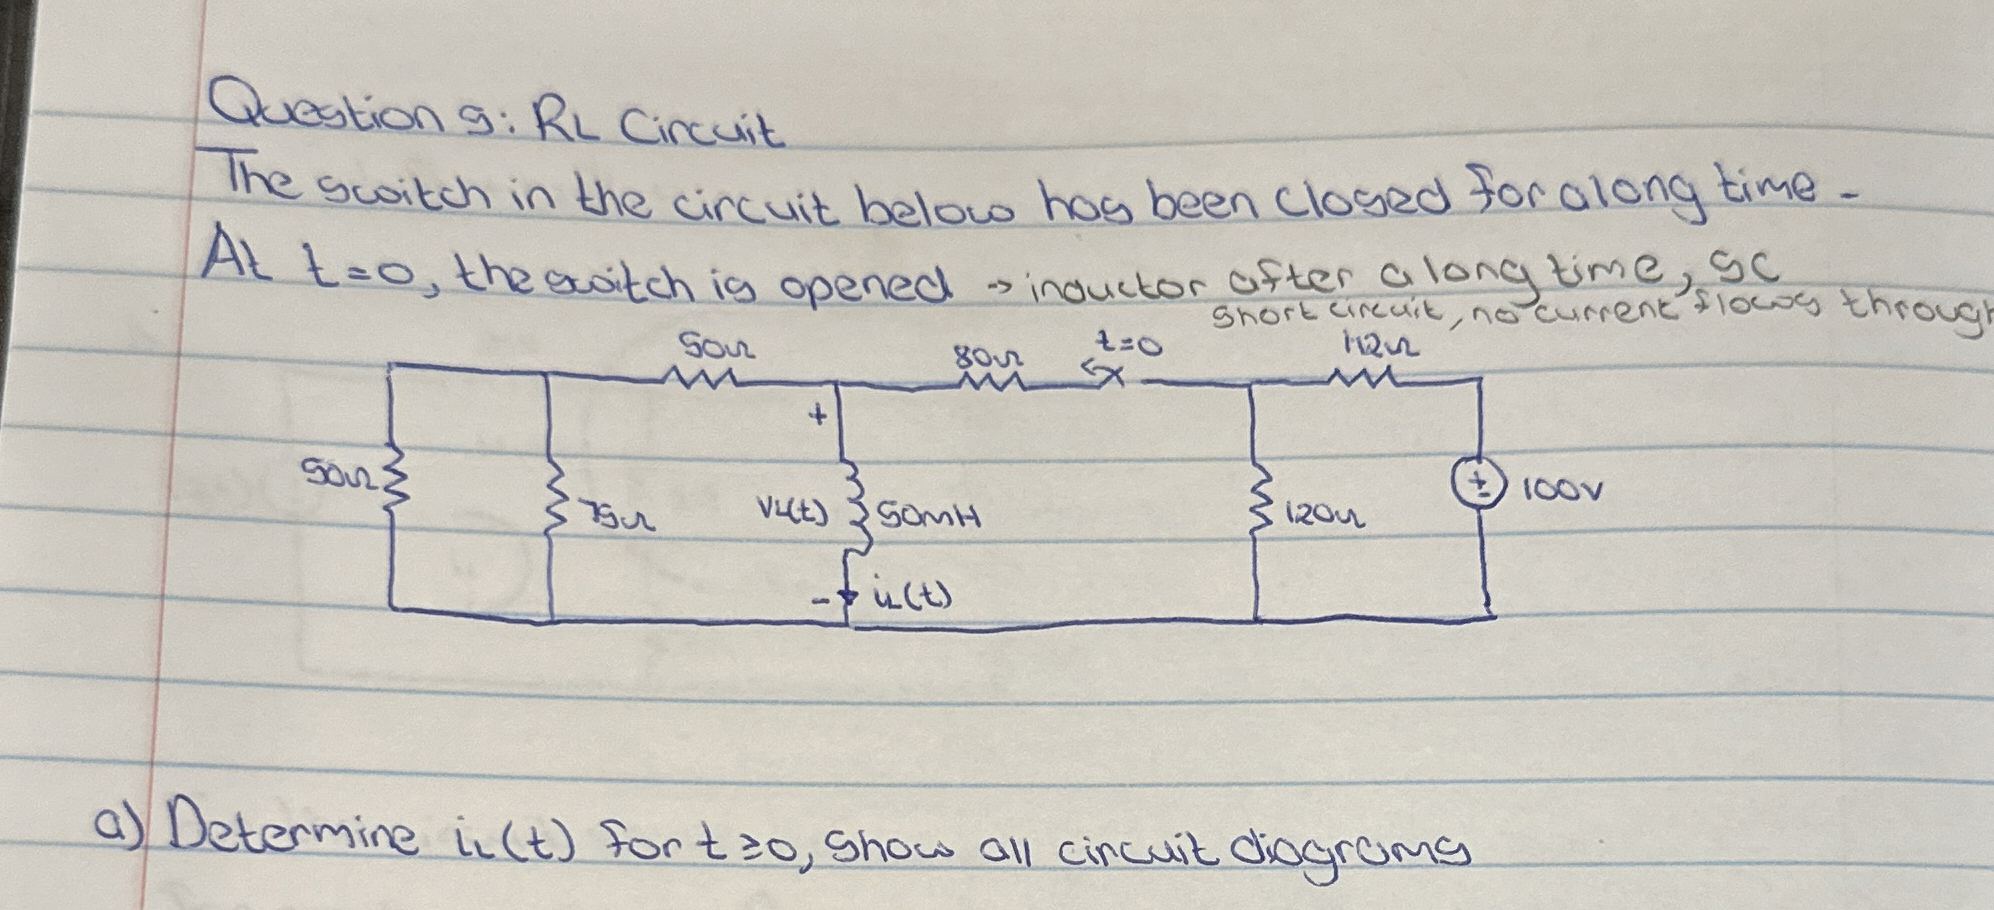 Question 9: RL Circuit
The switch in the circuit below has been closed for along time -
At t=0, the switch is opened → inductor after a long time, SC
short circuit, no current flows through
50Ω 80Ω t=0 112Ω
+
50Ω 75Ω VL(t) 50mH 120Ω ± 100V
- iL(t)
a) Determine iL(t) for t≥0, show all circuit diagrams